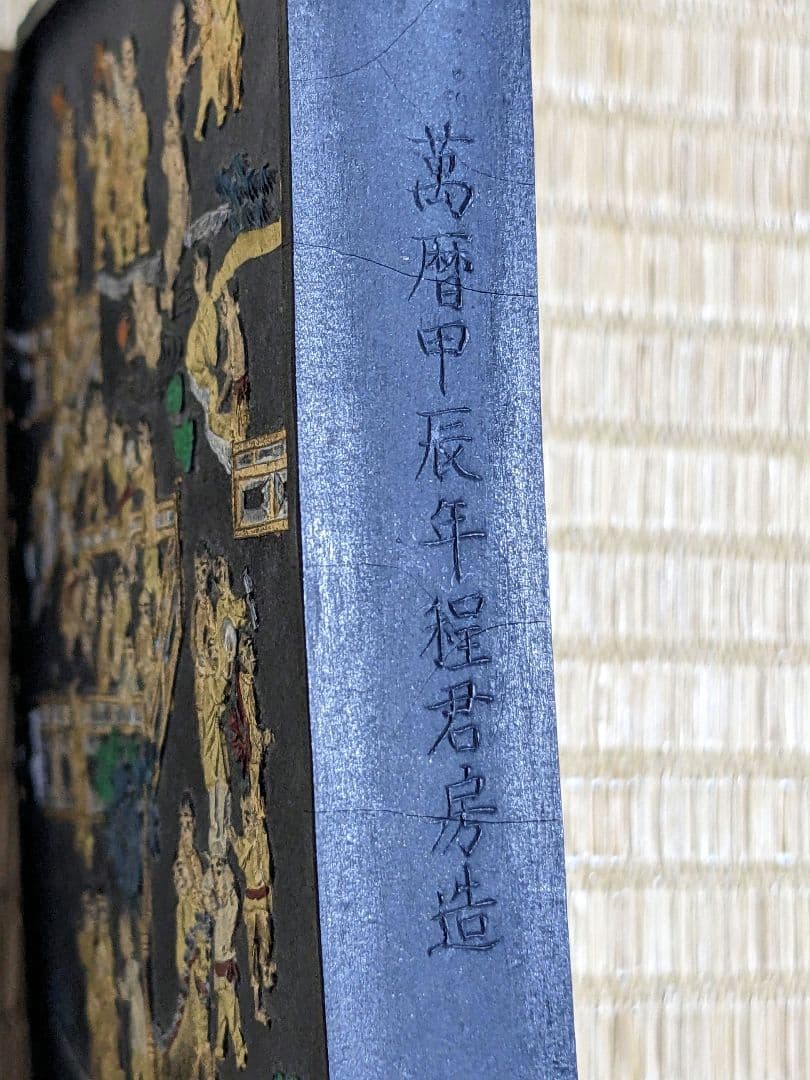 萬曆甲辰年程君房造